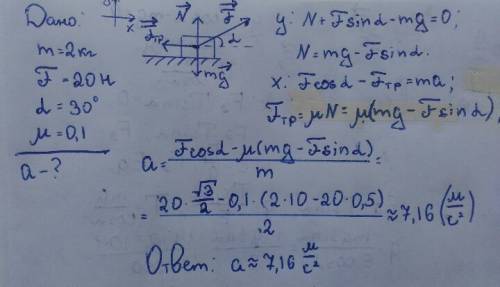 Дано:
m=2кг
F=20Н
α=30°
μ=0,1
a-?
x
N⃗
F⃗
F⃗тр
α
mg⃗
y: N+Fsinα-mg=0;
N=mg-Fsinα.
x: Fcosα-Fтр=ma;
Fтр=μN=μ(mg-Fsinα),
a=(Fcosα-μ(mg-Fsinα))/m=
=(20·√3/2-0,1·(2·10-20·0,5))/2≈7,16(м/с²)
Ответ: a≈7,16 м/с²